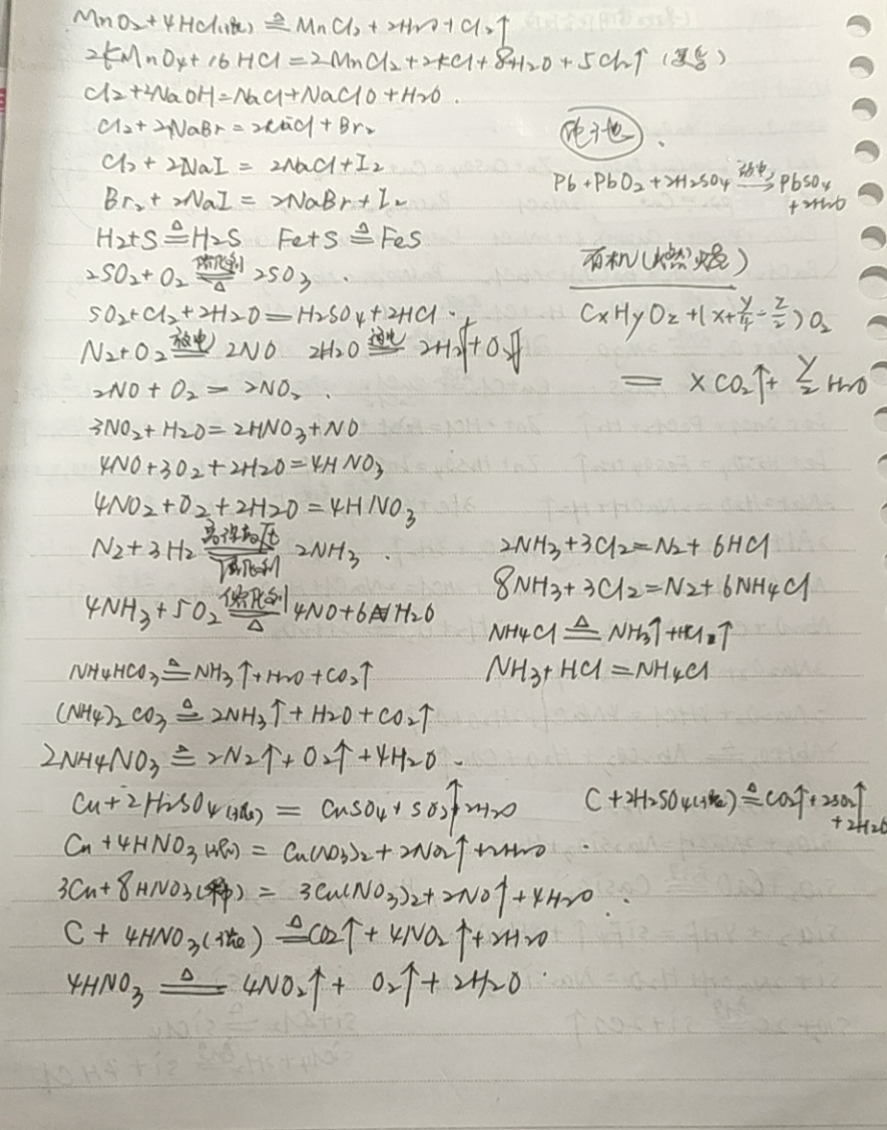 MnO2+4HCl(浓) ≜ MnCl2+2H2O+Cl2↑
2KMnO4+16HCl=2MnCl2+2KCl+8H2O+5Cl2↑
Cl2+2NaOH=NaCl+NaClO+H2O.
Cl2+2NaBr=2NaCl+Br2
Cl2+2NaI=2NaCl+I2
Br2+2NaI=2NaBr+I2
H2+S ≜ H2S Fe+S ≜ FeS
2SO2+O2 催化剂 △ 2SO3.
SO2+Cl2+2H2O=H2SO4+2HCl.
N2+O2 放电 2NO 2H2O 通电 2H2↑+O2↑
2NO+O2=2NO2.
3NO2+H2O=2HNO3+NO
4NO+3O2+2H2O=4HNO3
4NO2+O2+2H2O=4HNO3
N2+3H2 高温高压 催化剂 2NH3.
4NH3+5O2 催化剂 △ 4NO+6H2O
NH4HCO3 ≜ NH3↑+H2O+CO2↑
(NH4)2CO3 ≜ 2NH3↑+H2O+CO2↑
2NH4NO3 ≜ 2N2↑+O2↑+4H2O.
Cu+2H2SO4(浓)=CuSO4+SO2↑+2H2O
Cu+4HNO3(浓)=Cu(NO3)2+2NO2↑+2H2O.
3Cu+8HNO3(稀)=3Cu(NO3)2+2NO↑+4H2O.
C+4HNO3(浓) ≜ CO2↑+4NO2↑+2H2O
4HNO3 ≜ 4NO2↑+O2↑+2H2O.
电池.
Pb+PbO2+2H2SO4 放电→ PbSO4
+2H2O
有机(燃烧)
CxHyOz+(x+y/4-z/2)O2
= xCO2↑+y/2H2O
2NH3+3Cl2=N2+6HCl
8NH3+3Cl2=N2+6NH4Cl
NH4Cl ≜ NH3↑+HCl↑
NH3+HCl=NH4Cl
C+2H2SO4(浓) ≜ CO2↑+2SO2↑
+2H2O